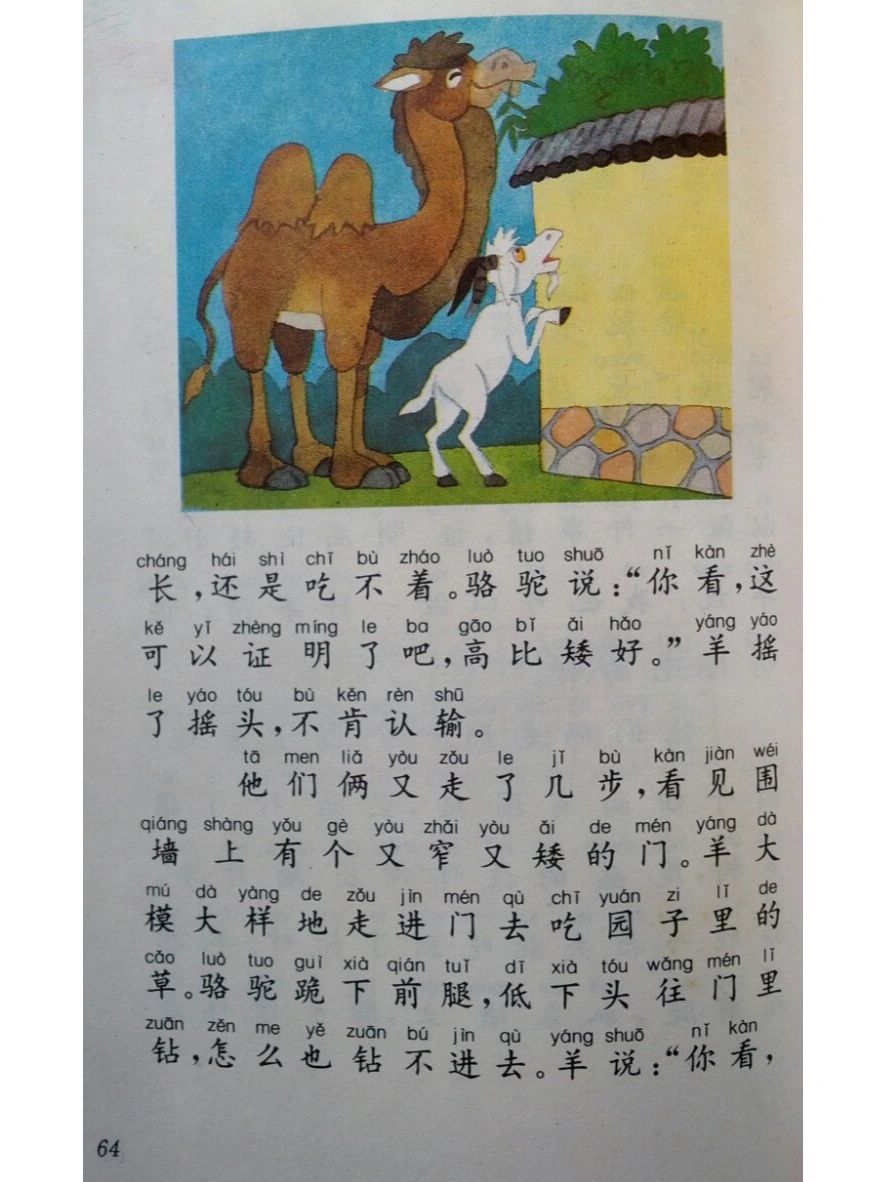 cháng hái shì chī bù zháo luò tuo shuō nǐ kàn zhè
长，还是吃不着。骆驼说：“你看，这
kě yǐ zhèng míng le ba gāo bǐ ǎi hǎo yáng yáo
可以证明了吧，高比矮好。”羊摇
le yáo tóu bù kěn rèn shū
了摇头，不肯认输。
tā men liǎ yòu zǒu le jǐ bù kàn jiàn wéi
他们俩又走了几步，看见围
qiáng shàng yǒu gè yòu zhǎi yòu ǎi de mén yáng dà
墙上有个又窄又矮的门。羊大
mú dà yàng de zǒu jìn mén qù chī yuán zi lǐ de
模大样地走进门去吃园子里的
cǎo luò tuo guì xià qián tuǐ dī xià tóu wǎng mén lǐ
草。骆驼跪下前腿，低下头往门里
zuān zěn me yě zuān bú jìn qù yáng shuō nǐ kàn
钻，怎么也钻不进去。羊说：“你看，
64